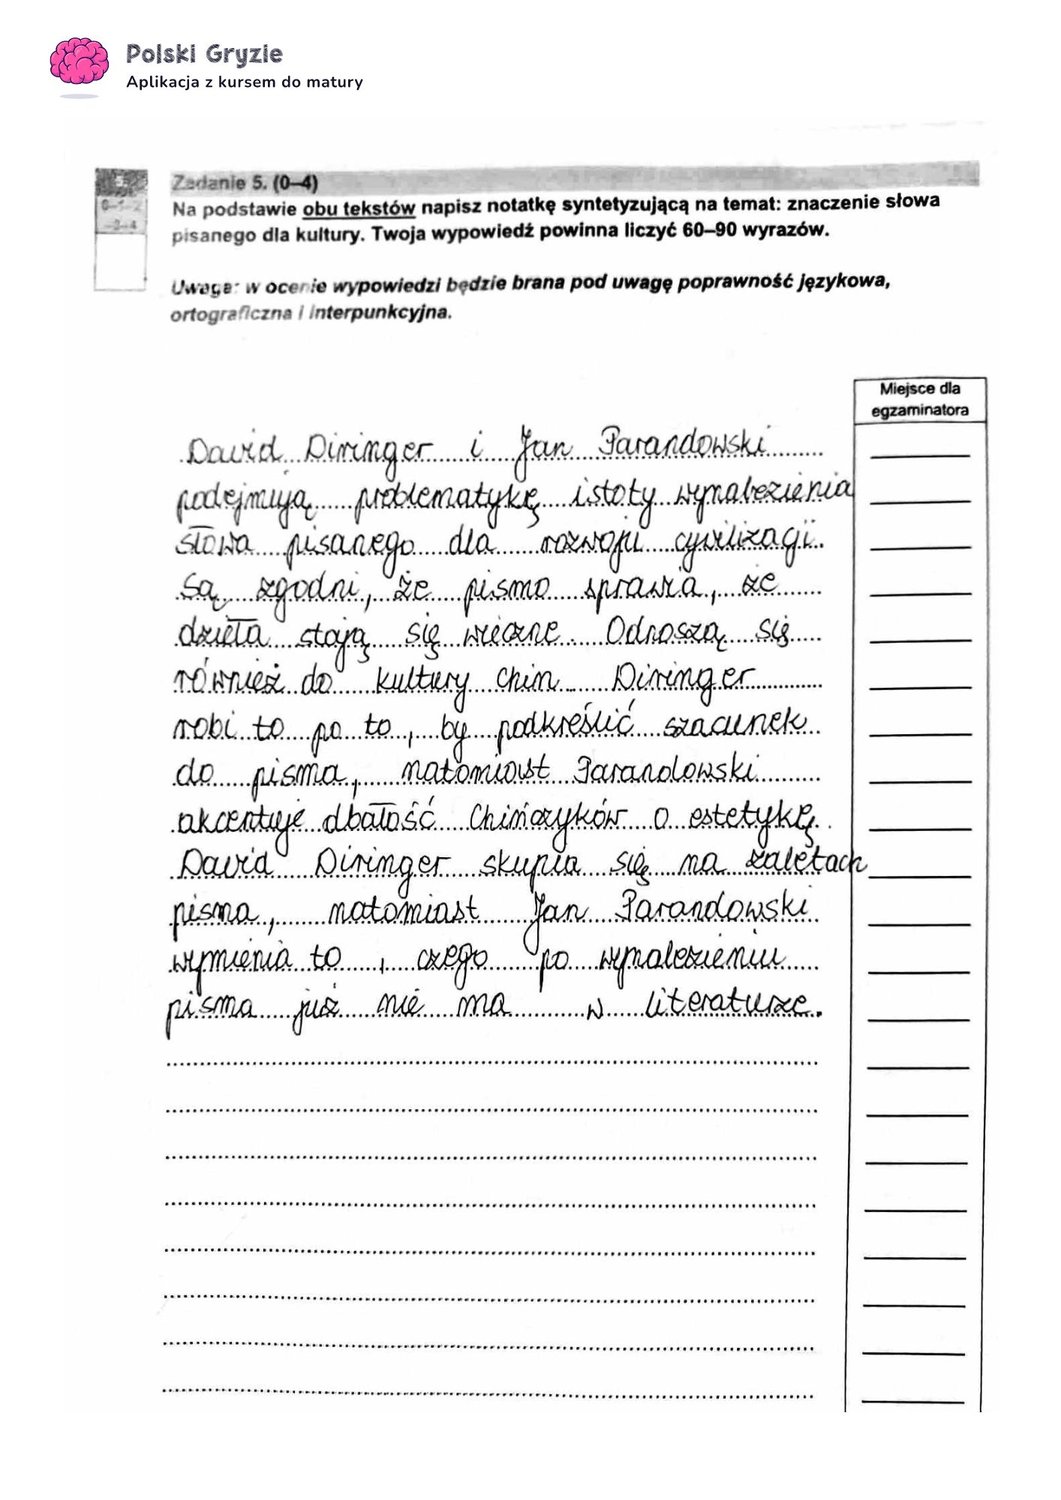 Polski Gryzie
Aplikacja z kursem do matury
Zadanie 5. (0–4)
0–1–2
–3–4
Na podstawie obu tekstów napisz notatkę syntetyzującą na temat: znaczenie słowa
pisanego dla kultury. Twoja wypowiedź powinna liczyć 60–90 wyrazów.
Uwaga: w ocenie wypowiedzi będzie brana pod uwagę poprawność językowa,
ortograficzna i interpunkcyjna.
Miejsce dla
egzaminatora
David Diringer i Jan Parandowski
podejmują problematykę istoty wynalezienia
słowa pisanego dla rozwoju cywilizacji.
Są zgodni, że pismo sprawia, że
dzieła stają się wieczne. Odnoszą się
również do kultury Chin. Diringer
robi to po to, by podkreślić szacunek
do pisma, natomiast Parandowski
akcentuje dbałość Chińczyków o estetykę.
David Diringer skupia się na zaletach
pisma, natomiast Jan Parandowski
wymienia to, czego po wynalezieniu
pisma już nie ma w literaturze.